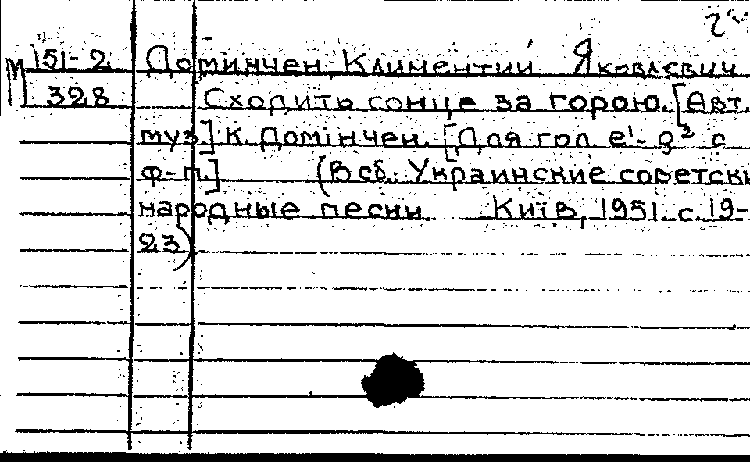 М 151-2 Доминчен, Климентий Яковлевич
328 Сходить сонце за горою. [Авт.
муз.] К. Домінчен. [Для гол e¹-g² с
ф-п.] (В сб.: Украинские советски
народные песни. Київ, 1951. с. 19-
23)